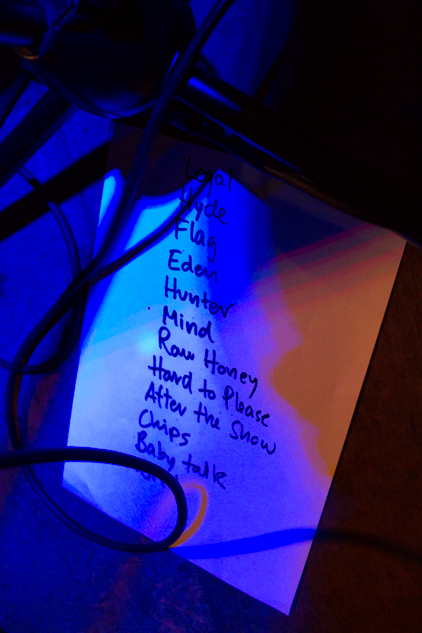 Legal
Hyde
Flag
Eden
Hunter
Mind
Raw Honey
Hard to Please
After the Show
Chips
Baby talk